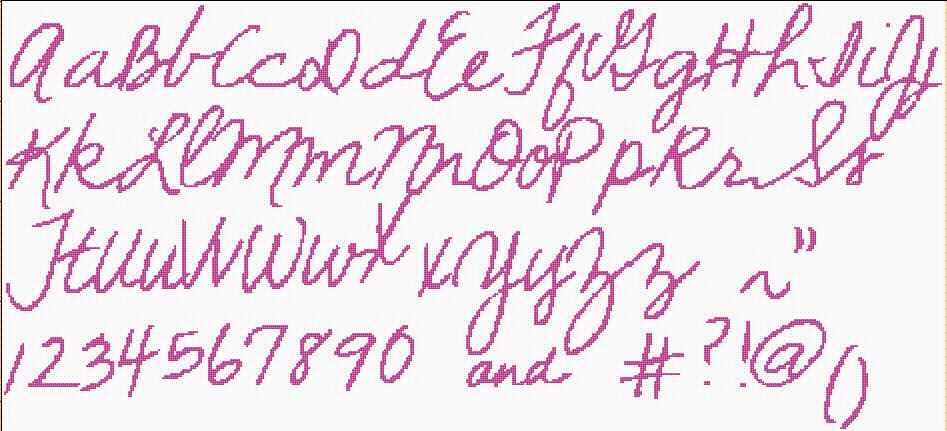 AaBbCcDdEeFfGgHhIiJj
KkLlMmNnOoPpRrSs
TtUuVvWwXxYyZz ~ "
1234567890 and # ?!@()